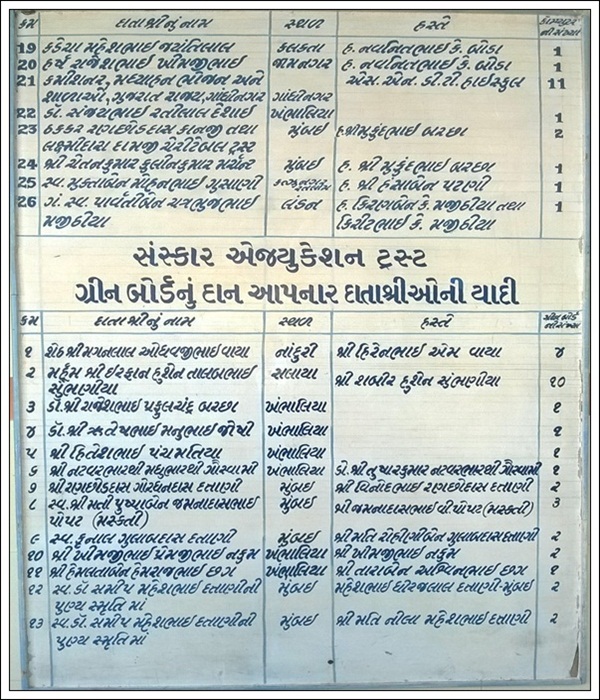 ક્રમ દાતાશ્રીનું નામ સ્થળ હસ્તે કોમ્પ્યુટર ની સંખ્યા
19 કકૈયા મહેશભાઈ જયંતિલાલ કલકતા હ. નવનિતભાઈ કે. બોડા 1
20 હર્ષ રાજેશભાઈ ખીમજીભાઈ જામનગર હ. નવનિતભાઈ કે. બોડા 1
21 કમીશનર, મધ્યાહન ભોજન અને એસ. એન. ડી. ટી. હાઈસ્કુલ 11
શાળાઓ, ગુજરાત રાજય, ગાંધીનગર ગાંધીનગર
22 ડૉ. સંજયભાઈ રતીલાલ દેશાઈ ખંભાળિયા 1
23 ઠકકર રણછોડદાસ કાનજી તથા મુંબઈ હ.શ્રી મુકુંદભાઈ બરછા 2
લક્ષ્મીદાસ દામજી ચેરીટેબલ ટ્રસ્ટ
24 શ્રી ચેતનકુમાર કુલીનકુમાર મર્ચન્ટ મુંબઈ હ. શ્રી મુકુંદભાઈ બરછા 1
25 સ્વ. મુકતાબેન મોહનભાઈ ગુસાણી હ. શ્રી હંસાબેન પટણી 1
26 ગં. સ્વ. પાર્વતીબેન ચત્રભુજભાઈ લંડન હ. કિરણબેન કે. મજીઠીયા તથા 1
મજીઠીયા કિરીટભાઈ કે. મજીઠીયા
સંસ્કાર એજયુકેશન ટ્રસ્ટ
ગ્રીન બોર્ડનું દાન આપનાર દાતાશ્રીઓની યાદી
ક્રમ દાતાશ્રીનું નામ સ્થળ હસ્તે ગ્રીન બોર્ડ ની સંખ્યા
૧ શેઠ શ્રી મગનલાલ ઓધવજીભાઈ વાયા નાંદુરી શ્રી હિરેનભાઈ એમ વાયા ૪
૨ મર્હુમ શ્રી ઈરફાન હુશેન તાલબભાઈ સલાયા શ્રી શબીર હુશેન સુંભણીયા ૧૦
સુંભણીયા
૩ ડૉ. શ્રી રાજેશભાઈ પ્રફુલચંદ્ર બરછા ખંભાળિયા ૧
૪ ડૉ. શ્રી ઋતેષભાઈ મનુભાઈ જોષી ખંભાળિયા ૧
૫ શ્રી હિતેશભાઈ પંચમતિયા ખંભાળિયા ૧
૬ શ્રી નટવરભારથી મધુભારથી ગૌસ્વામી ખંભાળિયા ડો. શ્રી તુષારકુમાર નટવરભારથી ગૌસ્વામી ૧
૭ શ્રી રણછોડદાસ ગોરધનદાસ દતાણી મુંબઈ શ્રી વિનોદભાઈ રણછોડદાસ દતાણી ૨
૮ સ્વ. શ્રીમતી પુષ્પાબેન જમનાદાસભાઈ મુંબઈ શ્રી જમનાદાસભાઈ વી પોપટ (મસ્કતી) ૩
પોપટ (મસ્કતી)
૯ સ્વ. કુનાલ ગુલાબદાસ દતાણી મુંબઈ શ્રી મતિ રોહીણીબેન ગુલાબદાસ દતાણી ૨
૧૦ શ્રી ખીમજીભાઈ પ્રેમજીભાઈ નકુમ ખંભાળિયા શ્રી ખીમજીભાઈ નકુમ ૨
૧૧ શ્રી હેમલતાબેન હેમરાજભાઈ છગ ખંભાળિયા શ્રી તારાબેન અશ્વિનભાઈ છગ ૧
૧૨ સ્વ. ડૉ સમીપ મહેશભાઈ દતાણીની મુંબઈ મહેશભાઈ ધીરજલાલ દતાણી-મુંબઈ ૨
પુણ્ય સ્મૃતિ માં
૧૩ સ્વ. ડૉ. સમીપ મહેશભાઈ દતાણીની મુંબઈ શ્રી મતિ નીલા મહેશભાઈ દતાણી ૨
પુણ્ય સ્મૃતિ માં